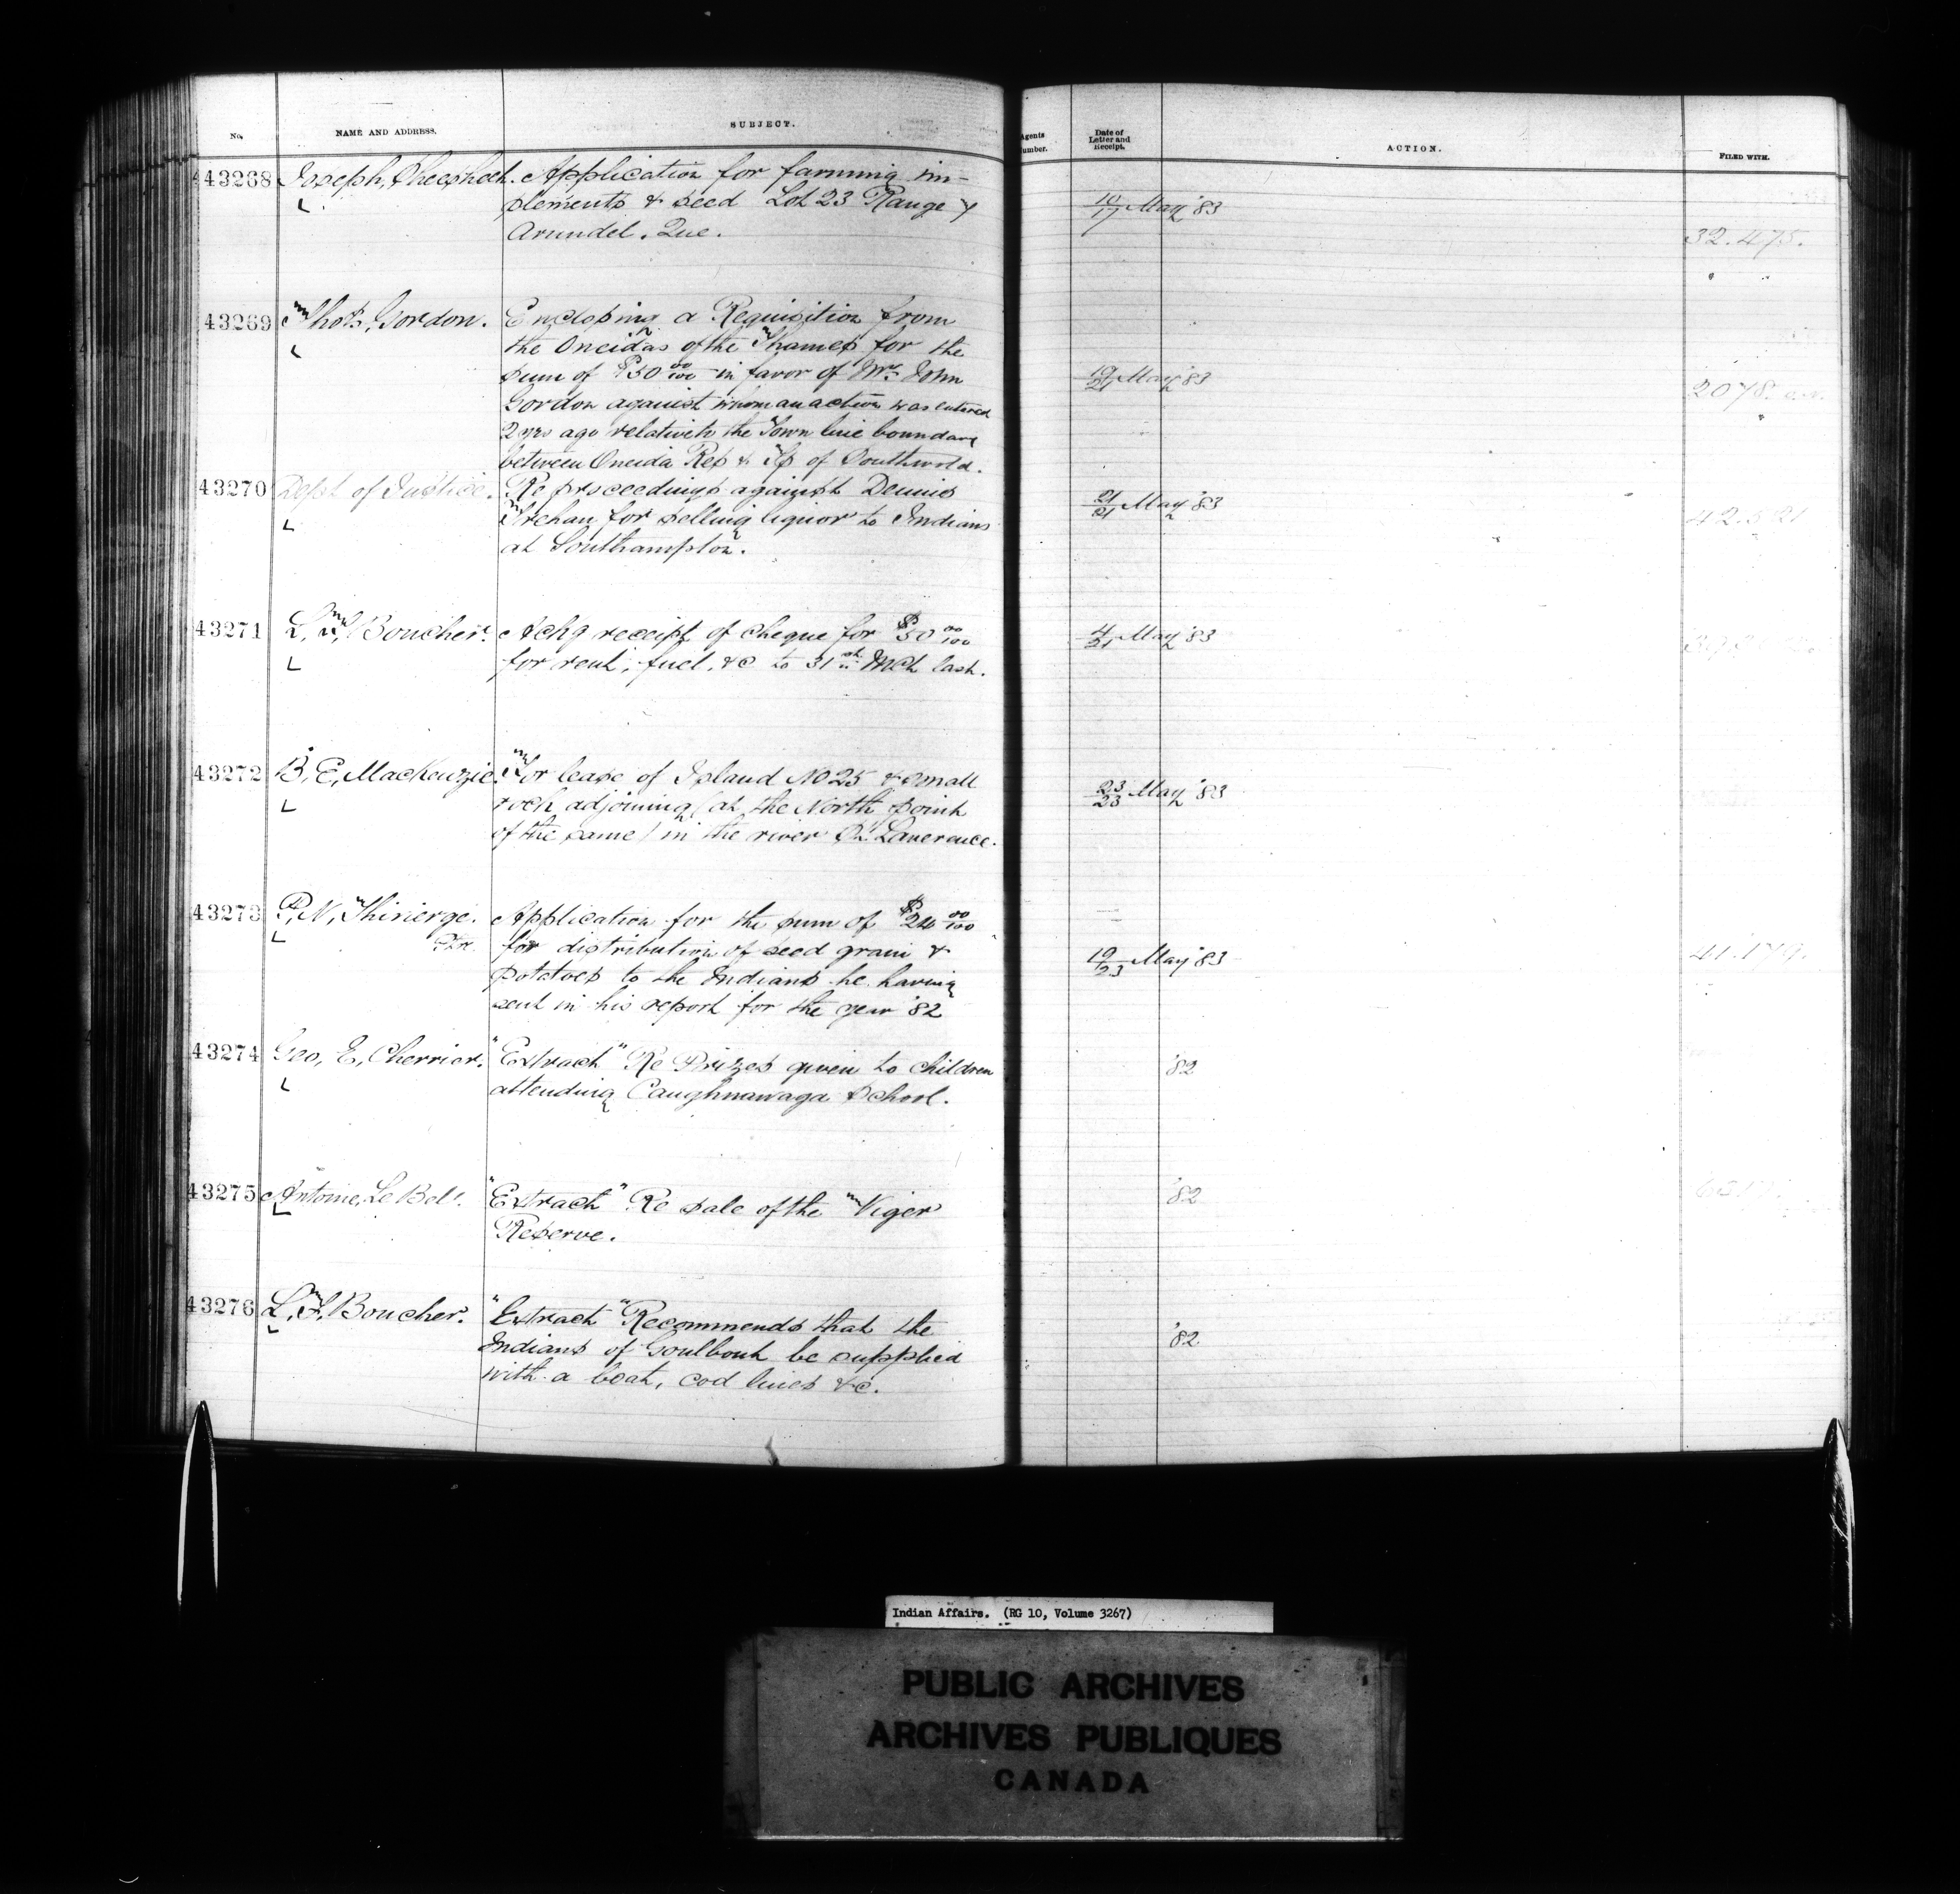 No.
NAME AND ADDRESS.
SUBJECT.
Agents
umber.
Date of
Letter and
Receipt.
ACTION.
FILED WITH.
43268
Joseph,
Application for farming im-
plements & seed Lot 23 Range
Arundel. Que.
10/17 May '83
32.475.
43269
Thos, Gordon.
Enclosing a Requisition from
the Oneidas of the Thames for the
sum of $50 00/100 in favor of Mr. John
Gordon against whom an action was entered
2 yrs ago relative to the Town line boundary
between Oneida Res & Tp of Southwold.
19/21 May '83
2078.
43270
Dept of Justice.
Re proceedings against Dennis
for selling liquor to Indians
at Southampton.
21/21 May '83
43271
L, F, Boucher.
Ackg receipt of cheque for $50 00/100
for rent, fuel, &c to 31st Mch last.
4/21 May '83
43272
B, E, MacKenzie.
For lease of Island No 25 & small
rock adjoining (at the North point
of the same) in the river St. Lawerence.
23/23 May '83
43273
P, N, Thivierge.
Application for the sum of $24 00/100
for distribution of seed grain &
potatoes to the Indians he having
sent in his report for the year '82
19/23 May '83
41.179.
43274
Geo, E, Cherrier.
"Extract" Re Prizes given to children
attending Caughnawaga School.
'82
43275
Antoine, Le Bel.
"Extract" Re sale of the Viger
Reserve.
'82
43276
L, F, Boucher.
"Extract" Recommends that the
Indians of be supplied
with a boat, cod lines &c.
'82
Indian Affairs. (RG 10, Volume 3267)
PUBLIC ARCHIVES
ARCHIVES PUBLIQUES
CANADA